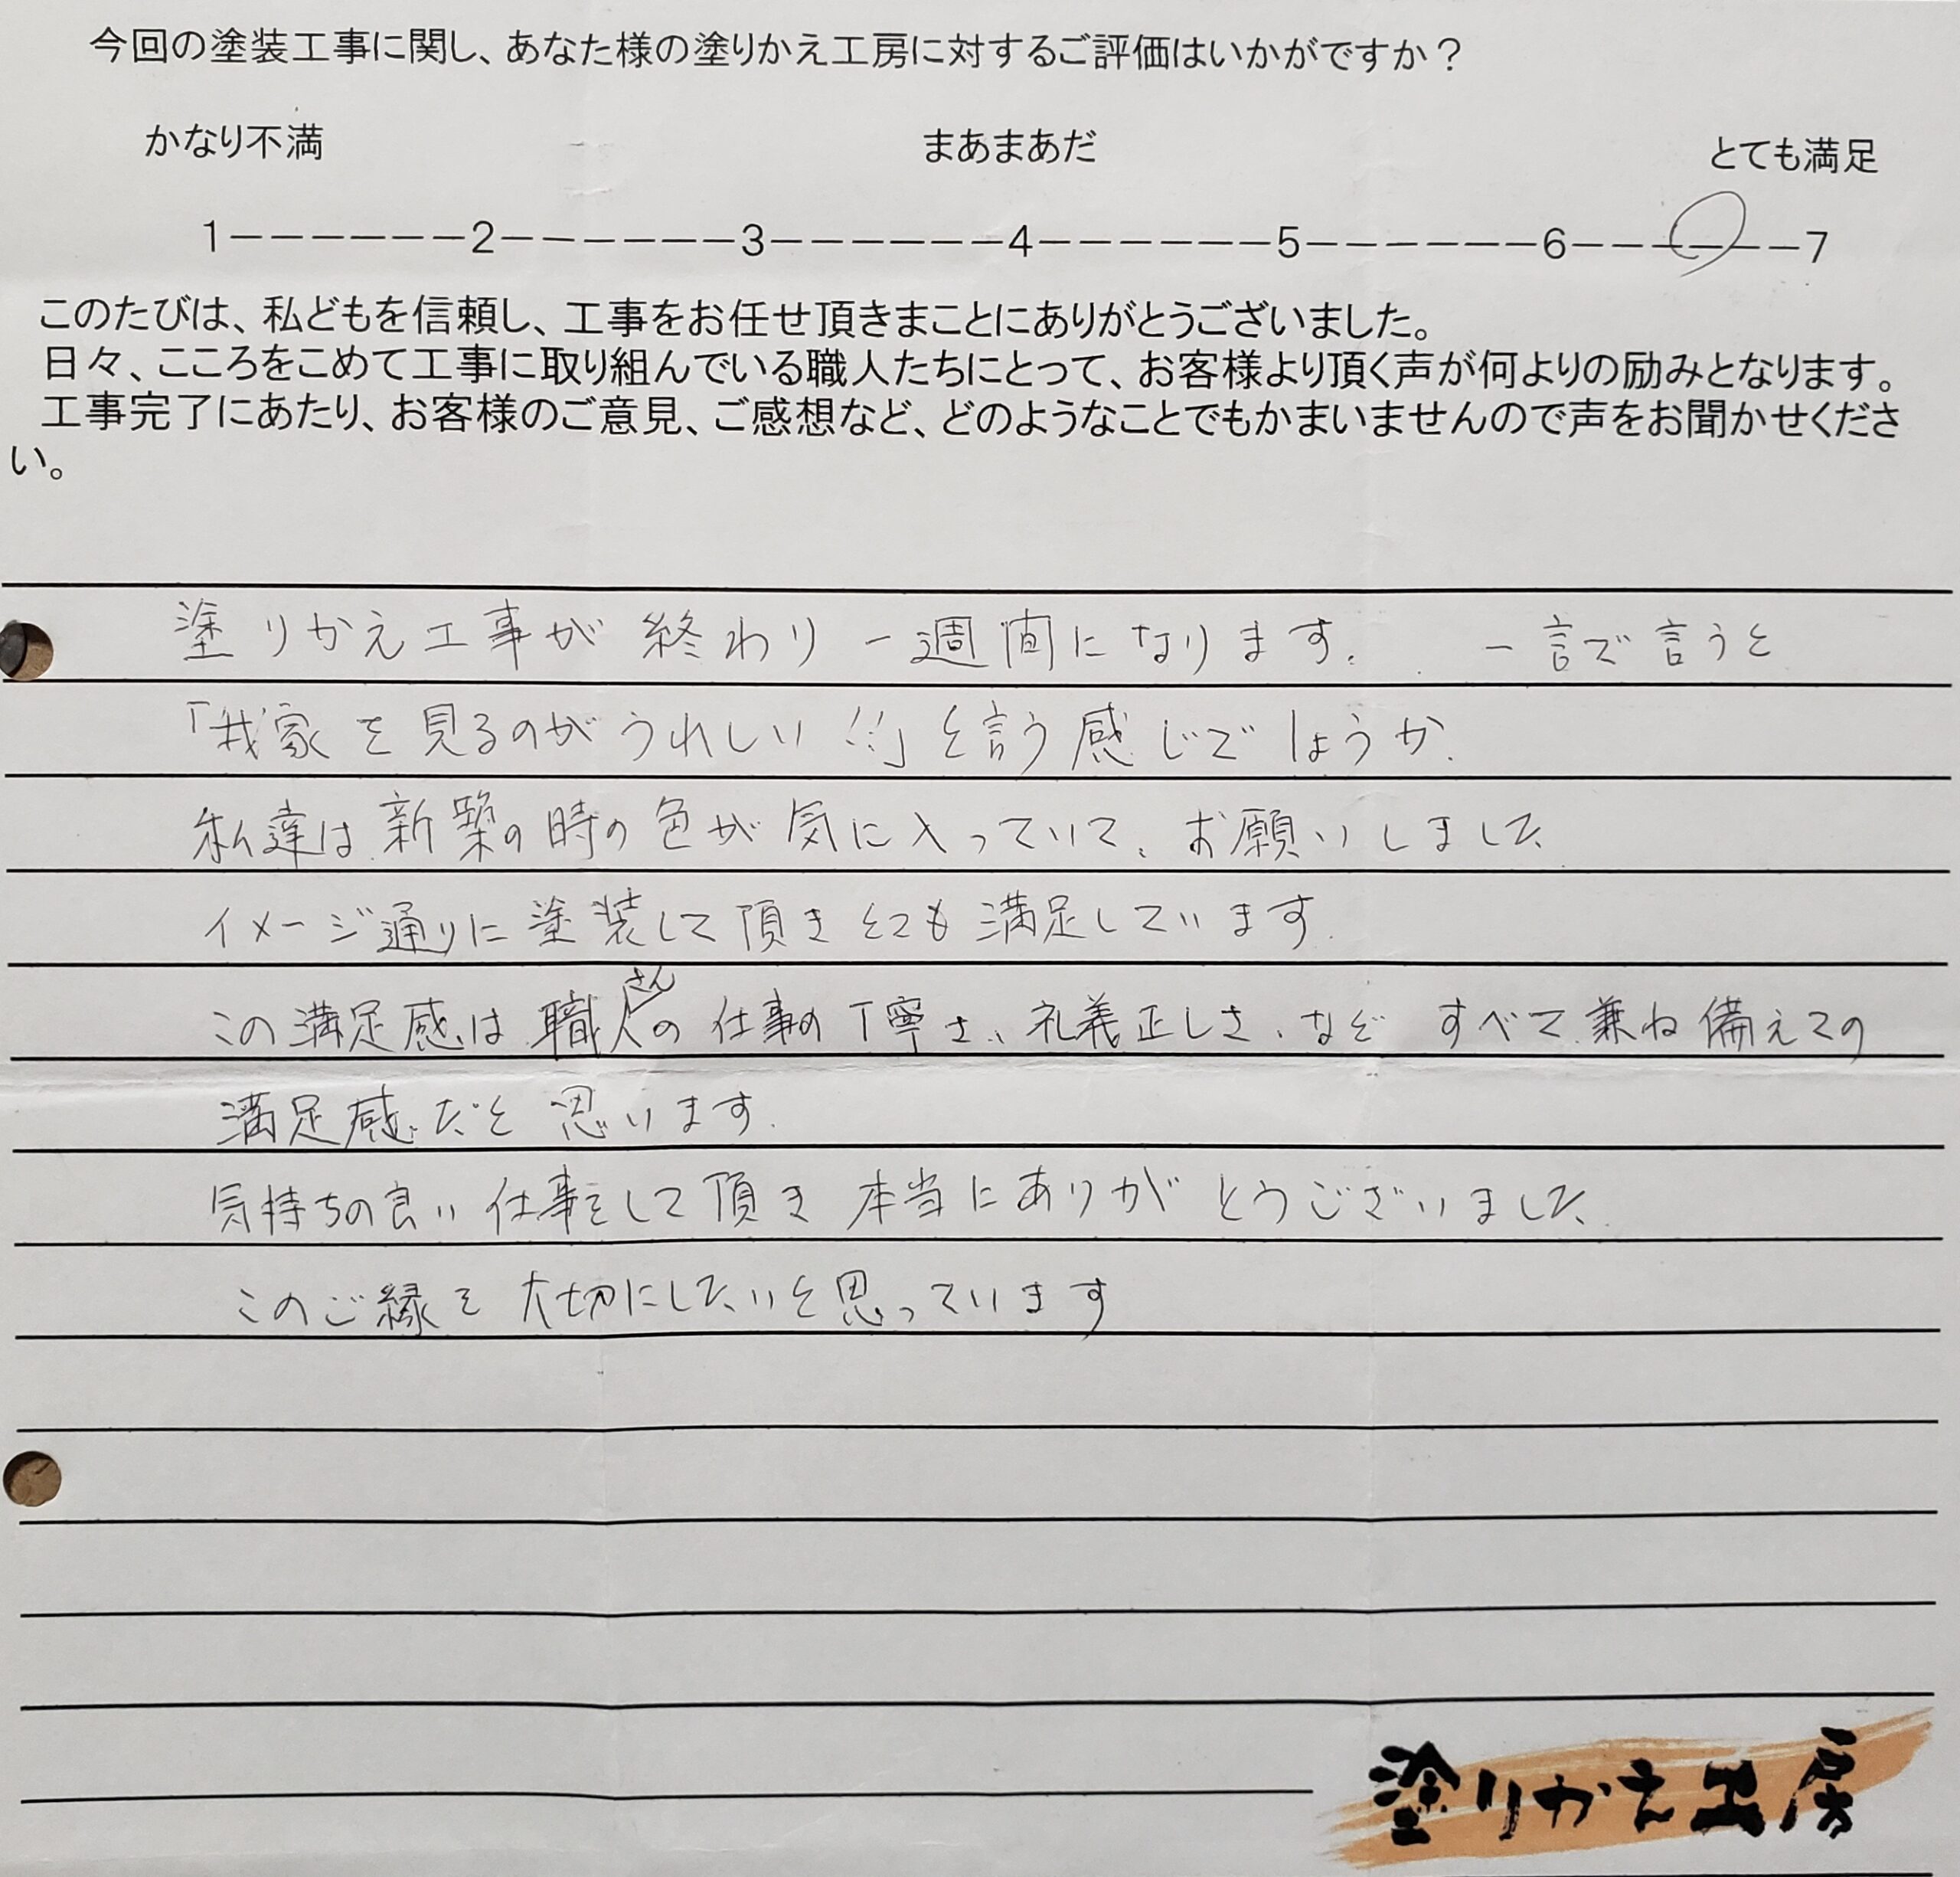 今回の塗装工事に関し、あなた様の塗りかえ工房に対するご評価はいかがですか？
かなり不満 まあまあだ とても満足
1――――――2――――――3――――――4――――――5――――――6――――――7
このたびは、私どもを信頼し、工事をお任せ頂きまことにありがとうございました。
日々、こころをこめて工事に取り組んでいる職人たちにとって、お客様より頂く声が何よりの励みとなります。
工事完了にあたり、お客様のご意見、ご感想など、どのようなことでもかまいませんので声をお聞かせくださ
い。
塗りかえ工事が終わり一週間になります。 一言で言うと
「我家を見るのがうれしい!!」と言う感じでしょうか.
私達は新築の時の色が気に入っていて、お願いしました
イメージ通りに塗装して頂きとても満足しています.
この満足感は職人さんの仕事の丁寧さ、礼義正しさ、など すべて兼ね備えての
満足感だと思います.
気持ちの良い仕事をして頂き本当にありがとうございました.
このご縁を大切にしたいと思っています
塗りかえ工房